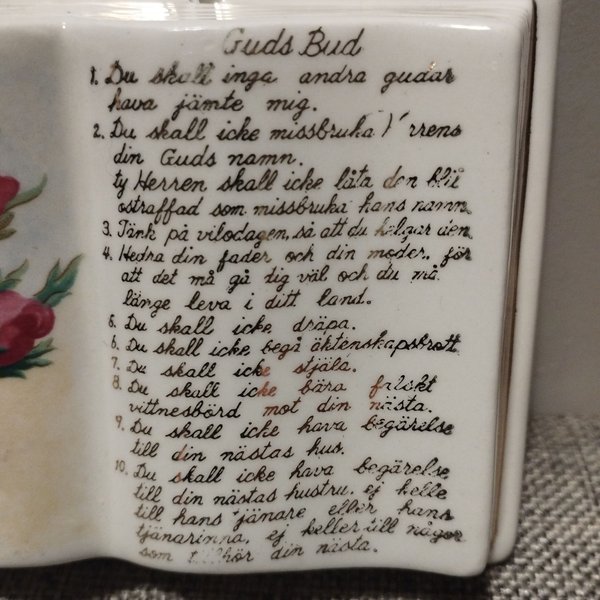 Guds Bud
1. Du skall inga andra gudar
hava jämte mig.
2. Du skall icke missbruka
din Guds namn.
ty Herren skall icke låta den bli
ostraffad som missbruka hans namn.
3. Tänk på vilodagen, så att du helgar den.
4. Hedra din fader och din moder, för
att det må gå dig väl och du må
länge leva i ditt land.
5. Du skall icke dräpa.
6. Du skall icke begå äktenskapsbrott
7. Du skall icke stjäla.
8. Du skall icke bära falskt
vittnesbörd mot din nästa.
9. Du skall icke hava begärelse
till din nästas hus.
10. Du skall icke hava begärelse
till din nästas hustru, ej helle
till hans tjänare eller hans
tjänarinna, ej heller till något
som tillhör din nästa.